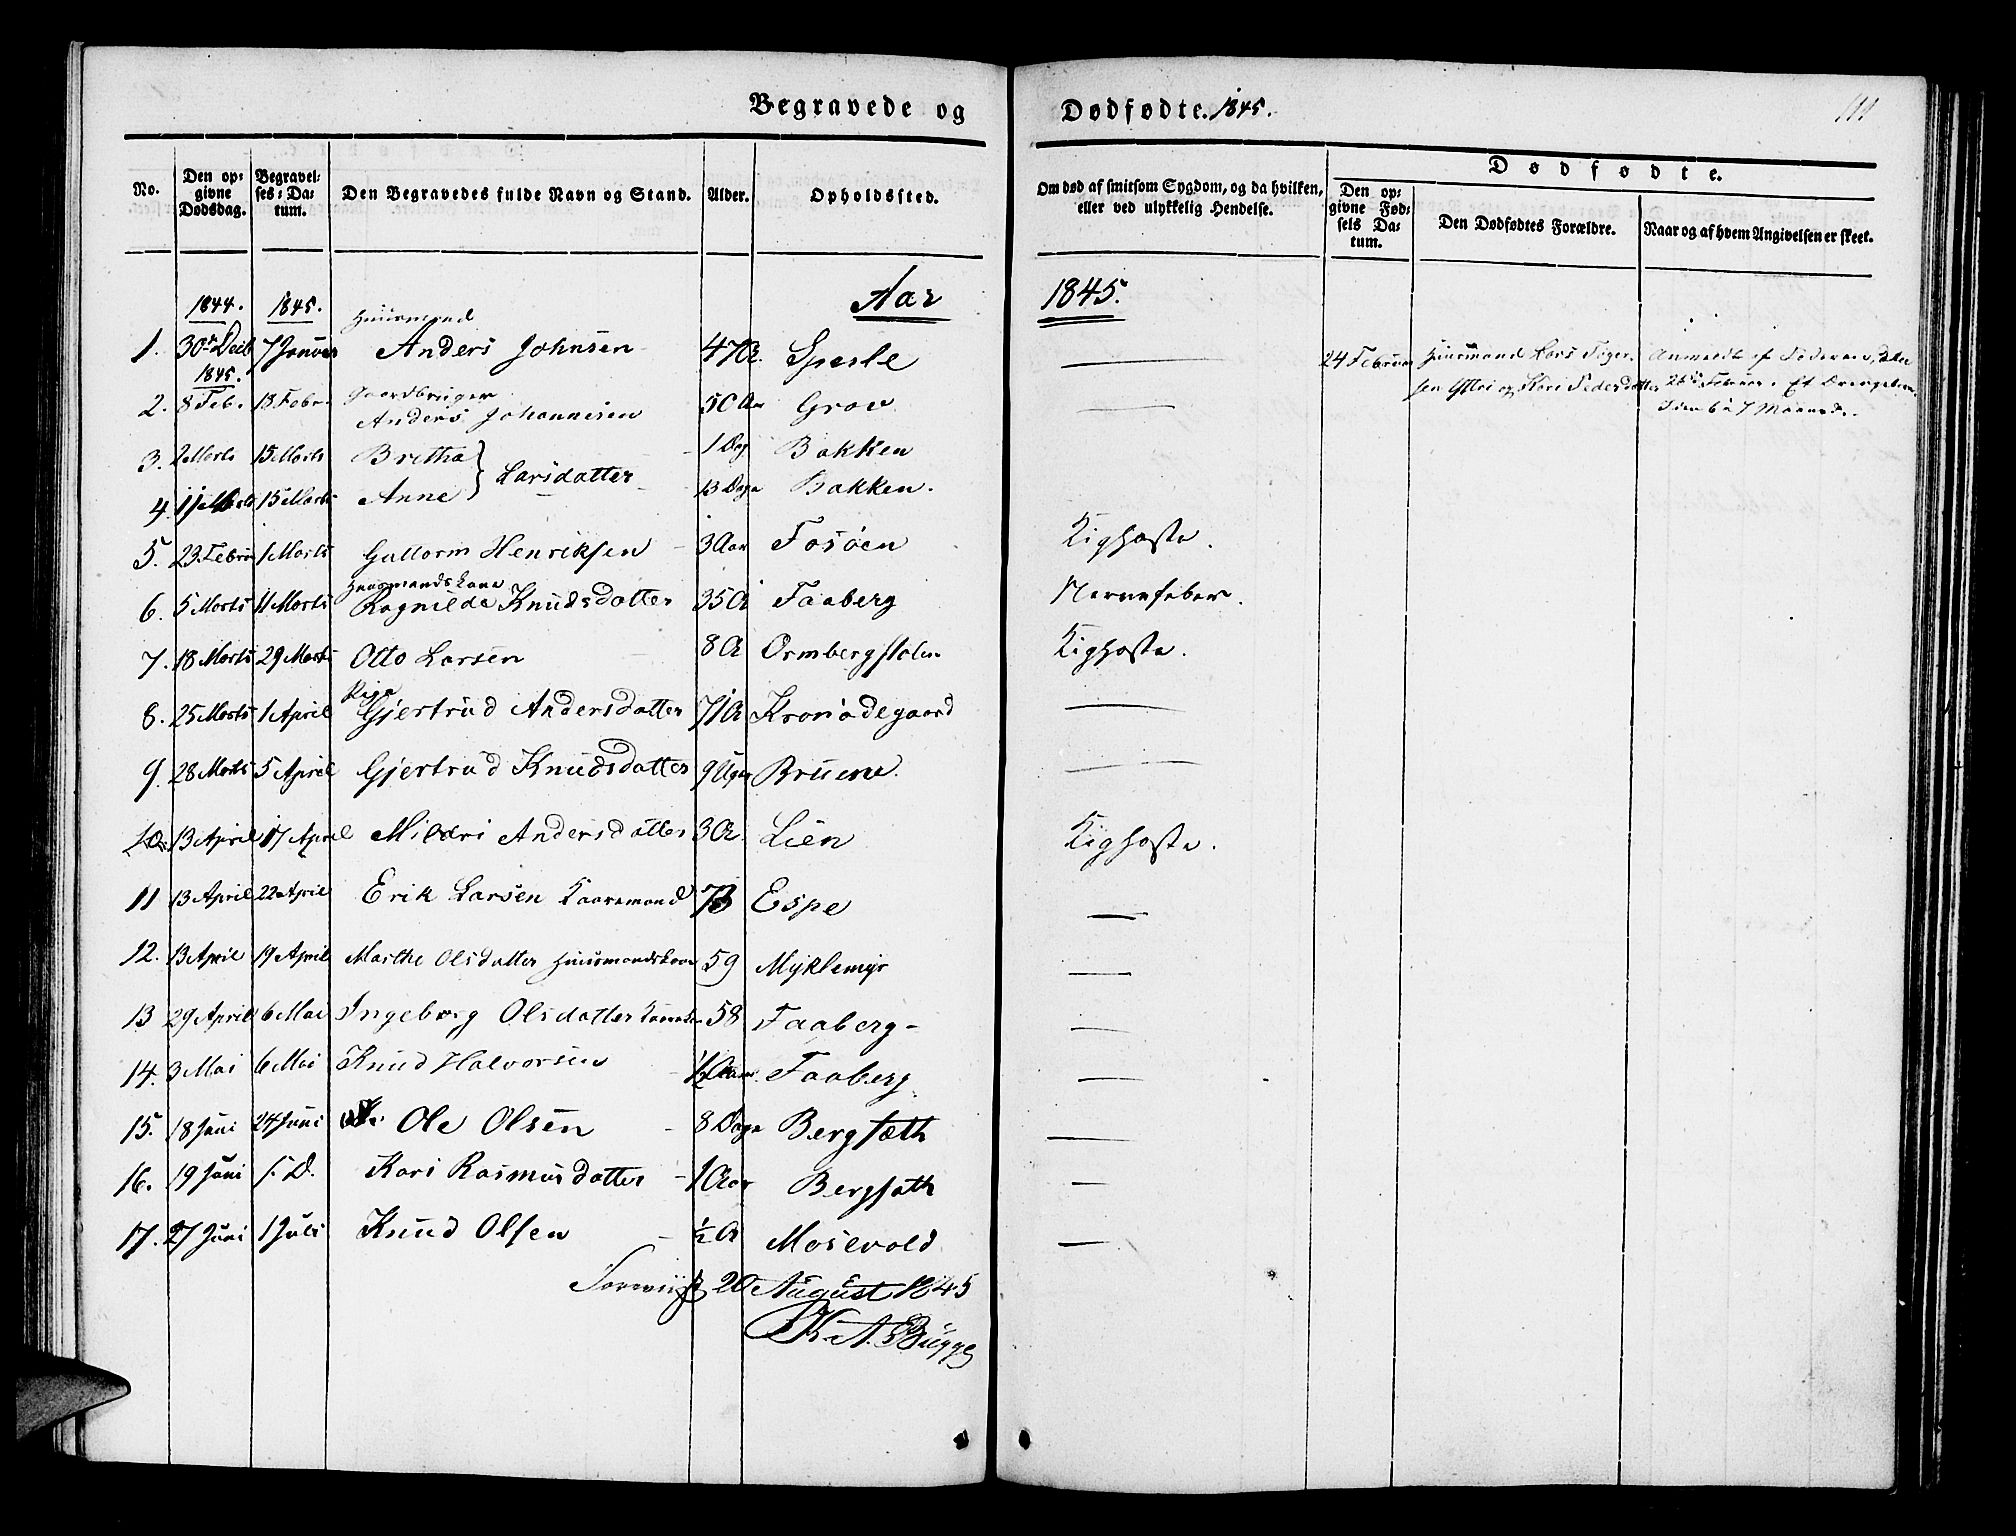 Begravede og Dødfødte. 1845.
111
No.
Den opgivne Dødsdag.
Begravelses-Datum.
Den Begravedes fulde Navn og Stand.
Alder.
Opholdssted.
Om død af smitsom Sygdom, og da hvilken, eller ved ulykkelig Hendelse.
Dødfødte.
Den opgivne Fødsels Datum.
Den Dødfødtes Forældre.
Naar og af hvem Angivelsen er skeet.
Aar 1845.
1844. 1845.
Huusmand
1. 30 Decb 7 Januar Anders Johnsen 47 A. —
1845.
Gaardbruger
2. 8 Feb. 13 Febr. Anders Johannesen 50 Aar Grov —
3. 2 Marts 15 Marts Britha } Larsdatter 1 Dag Bakken
4. 11 Marts 15 Marts Anne 13 Dage Bakken.
5. 23 Februar 1 Marts Guttorm Henriksen 3 Aar Fosøen Kighoste.
Huusmandskone
6. 5 Marts 11 Marts Ragnilde Knudsdatter 35 A Faaberg Nervefeber.
7. 18 Marts 29 Marts Otto Larsen 8 A Ormbergstølen Kighoste.
Pige
8. 25 Marts 1 April Gjertrud Andersdatter 71 A Kronødegaard —
9. 28 Marts 5 April Gjertrud Knudsdatter 9 Uger Bruene. —
10. 13 April 17 April Mildri Andersdatter 3 A. Lien Kighoste.
11 13 April 22 April Erik Larsen Kaaremand 73 Espe —
12. 13 April 19 April Marthe Olsdatter Huusmandskone 59 Myklemyr —
13 29 April 6 Mai Ingeborg Olsdatter 58 Faaberg —
14. 3 Mai 6 Mai Knud Halvorsen ½ Aar Faaberg —
15. 18 Juni 24 Juni Ole Olsen 8 Dage Bergsæth —
16. 19 Juni s. D. Kari Rasmusdatter 1 Aar Bergsæth —
17. 27 Juni 1 Juli Knud Olsen ½ A Mosevold —
20 August 1845
K. A. Bugge
24 Februar Huusmand Lars Siger-
sen og Kari Pedersdatter
Anmeldt af Faderen, den
26 Februar. Et Drengebarn.
6 a 7 Maaned.